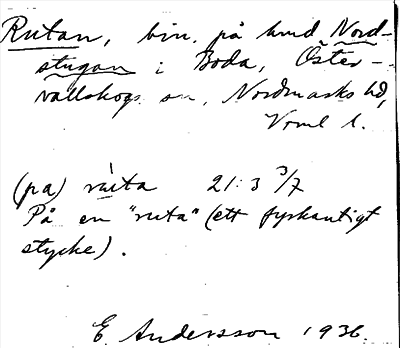 Rutan, bin. på hmd Nord-
stugan i Boda, Öster-
vallskogs sn, Nordmarks hd,
Vrml l.
(pa) ruta 21:3 3/7
På en "ruta" (ett fyrkantigt
stycke).
E. Andersson 1936.